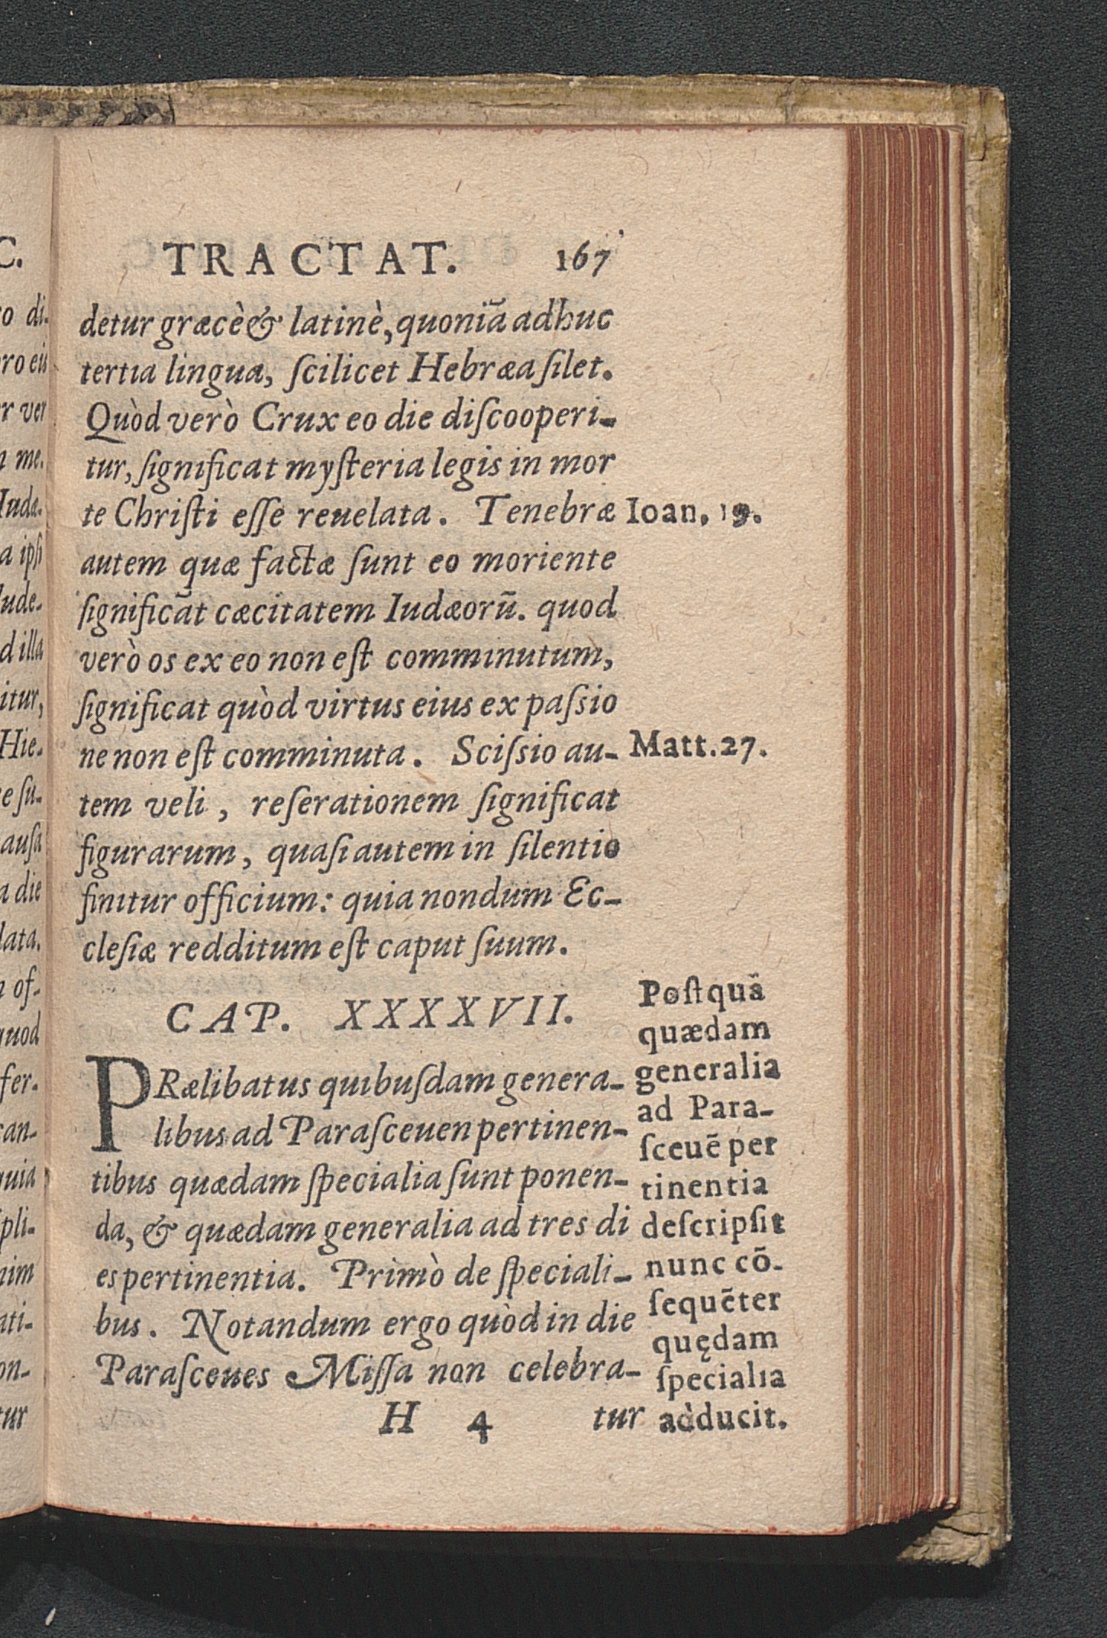 TRACTAT. 167
detur græcè & latinè, quoniã adhuc
tertia lingua, ſcilicet Hebræa ſilet.
Quòd verò Crux eo die diſcooperi-
tur, ſignificat myſteria legis in mor
te Chriſti eſſe reuelata. Tenebræ
autem quæ factæ ſunt eo moriente
ſignificãt cæcitatem Iudæorũ. quod
verò os ex eo non eſt comminutum,
ſignificat quòd virtus eius ex paſsio
ne non eſt comminuta. Sciſsio au-
tem veli, reſerationem ſignificat
figurarum, quaſi autem in ſilentio
finitur officium: quia nondum Ec-
cleſiæ redditum eſt caput ſuum.
Ioan. 19.
Matt. 27.
CAP. XXXXVII.
PRælibatus quibuſdam genera-
libus ad Paraſceuen pertinen-
tibus quædam ſpecialia ſunt ponen-
da, & quædam generalia ad tres di
es pertinentia. Primò de ſpeciali-
bus. Notandum ergo quòd in die
Paraſceues Miſſa non celebra-
H 4 tur
Poſtquã
quædam
generalia
ad Para-
ſceuẽ per
tinentia
deſcripſit
nunc cõ-
ſequẽter
quędam
ſpecialia
adducit.